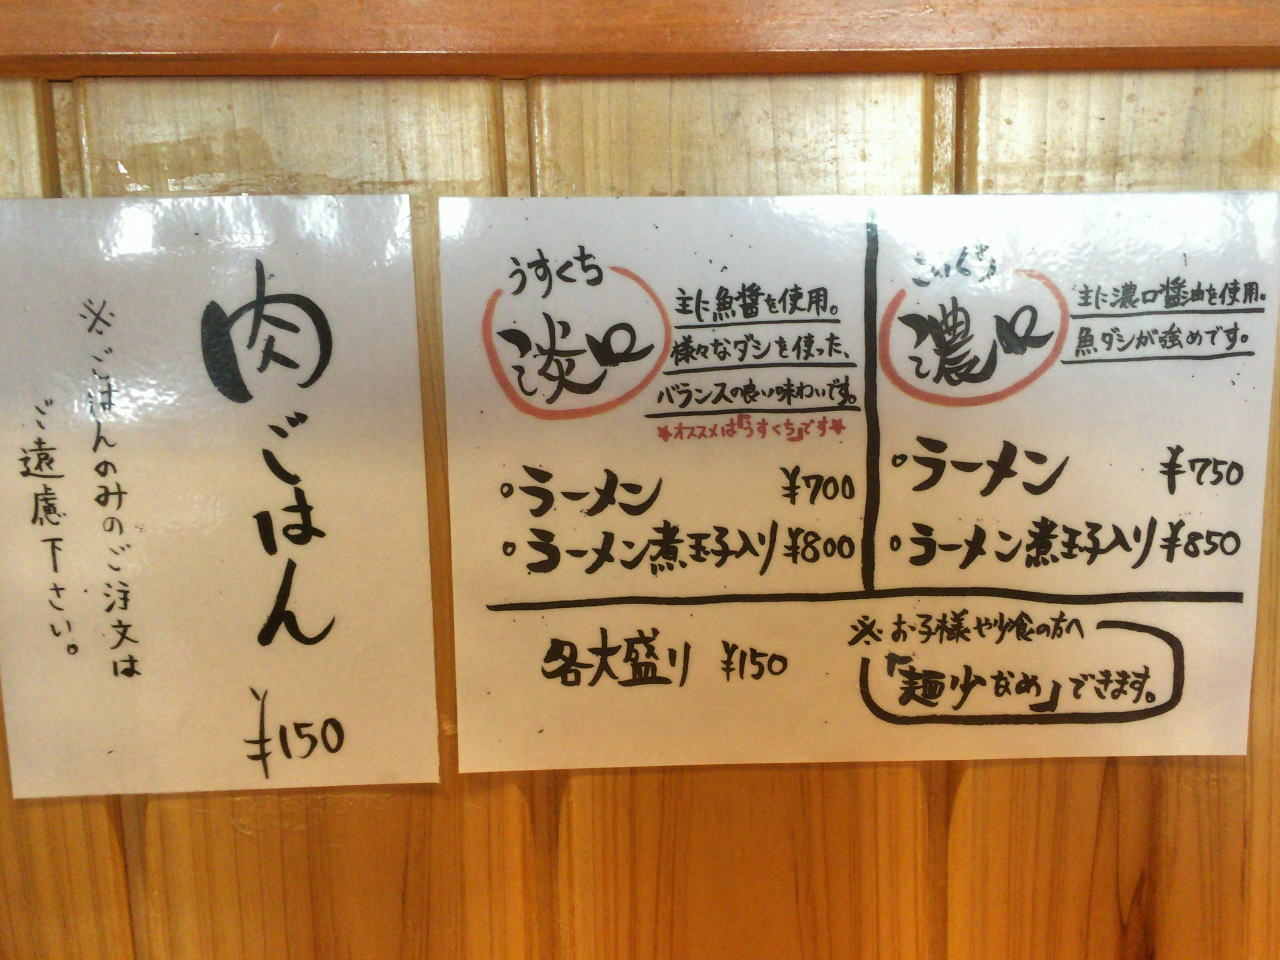 肉ごはん
¥150
※ごはんのみのご注文は
ご遠慮下さい。
うすくち
淡口
主に魚醤を使用。
様々なダシを使った、
バランスの良い味わいです。
★オススメは「うすくち」です★
○ラーメン ¥700
○ラーメン煮玉子入り ¥800
こいくち
濃口
主に濃口醤油を使用。
魚ダシが強めです。
○ラーメン ¥750
○ラーメン煮玉子入り ¥850
各大盛り ¥150
※お子様や少食の方へ
「麺少なめ」できます。